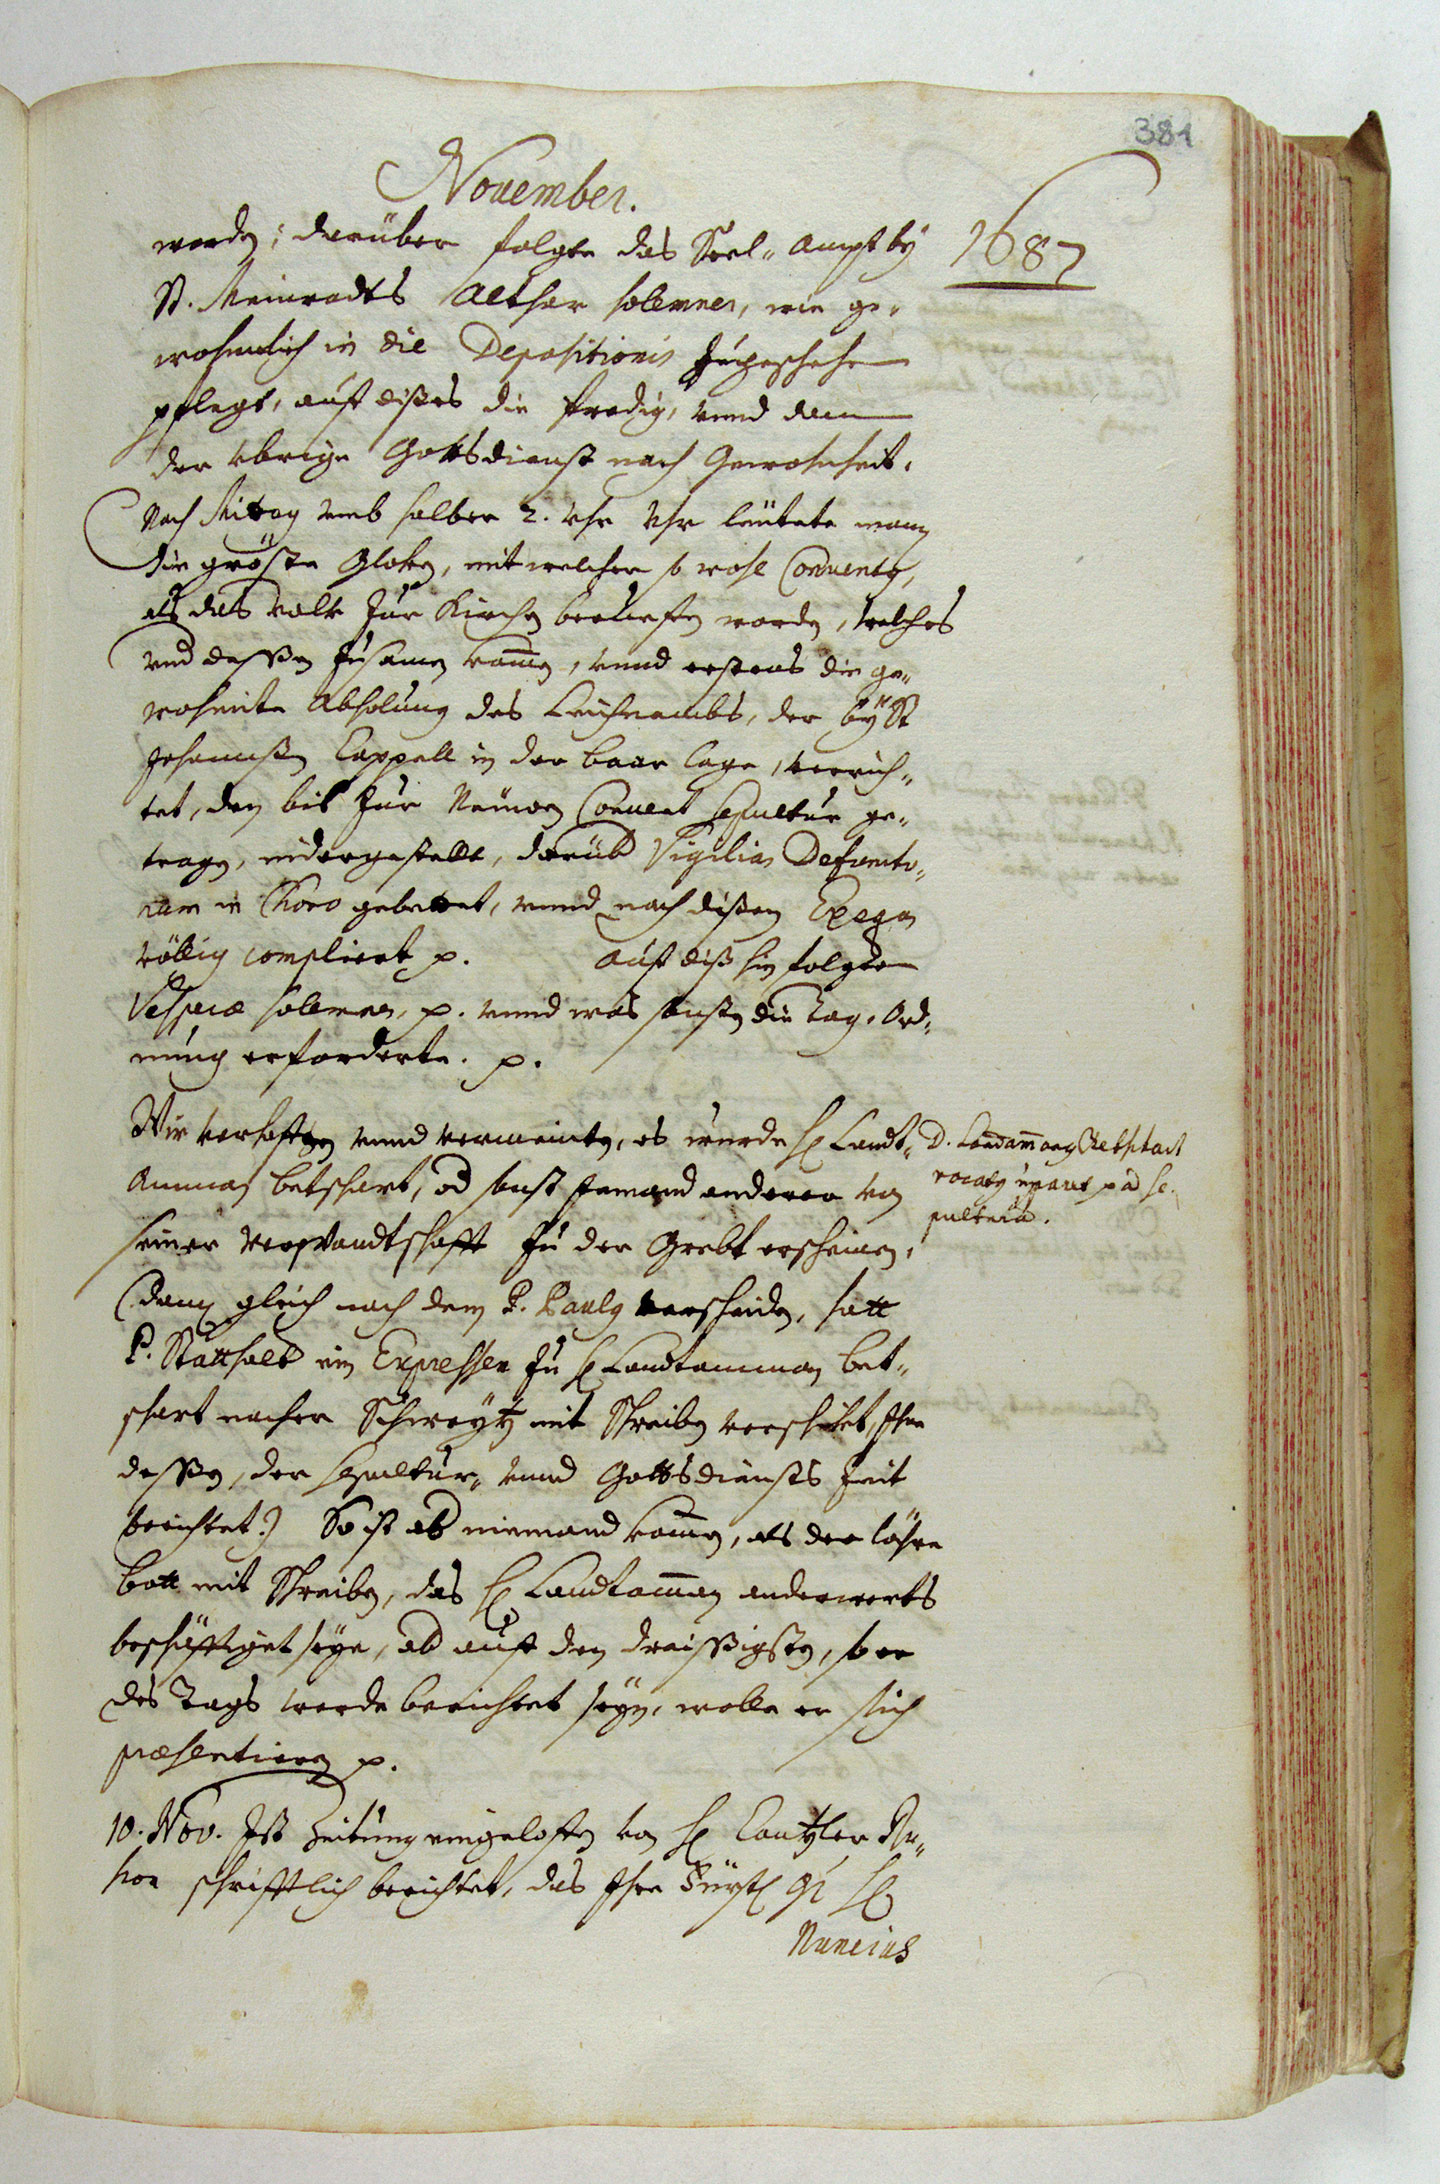 381
November.
1687
worden; darüber folgte das Seel-Ampt by
St. Meinradts Althar solemner, wie ge-
wohnlich in die Depositionis zúgeschehen
pflegt, auff dißes die Predig, vnnd dann
der vbrige Gottsdienst nach Gewohnheit.
Nach Mitag vmb halber 2. vhr vhr leütete man
die gröste Gloken, mit welcher so wohl Conventg,
als das volk zúr Kirchen berúeffen worden, welches
vnd deßen zúsamen komen, vnnd erstens die ge-
wohnte Abholúng des Leichnambs, der bÿ St
Johannßen Cappell in der baar lage, verrich-
tet, den bis zúr Neüwen Convent sepultúr ge-
tragen, nidergestellt, darüber Vigilias Defuncto-
rum in Choro gebettet, vnnd nach dißen Exequias
völlig compliert p. Aúff diß hin folgten
Vesperæ solemnes, p. vnnd was sonsten die Tag-Ord-
núng erforderte. p.
Wir verhofften vnnd vermeinten, es würde H Landt-
Amman Betschart, od sonst jemand anderer von
seiner verwandtschafft zú der Grebt erscheinen,
(dann gleich nach dem P. Paulg verscheiden, hatt
P. Statthalter ein Expressen zú H Landtamman Bet-
schart nacher Schweytz mit Schreiben verschikt, Ihne
deßen, der sepultúr- vnnd Gottsdiensts Zeit
berichtet.) So ist aber niemand komen, als der lähre
Bott mit Schreiben, das H Landtaman anderwerts
beschäfftiget seye, aber aúff den dreissigsten, so er
des Tags werde berichtet seyn, wolle er sich
præsentieren p.
D. Landamang Betschart
vocatg
pulturâ.
10. Nov. Ist Zeitúng eingeloffen von H Cantzler
schrifftlich berichtet, das Ihre Fürstl H
Nuncius